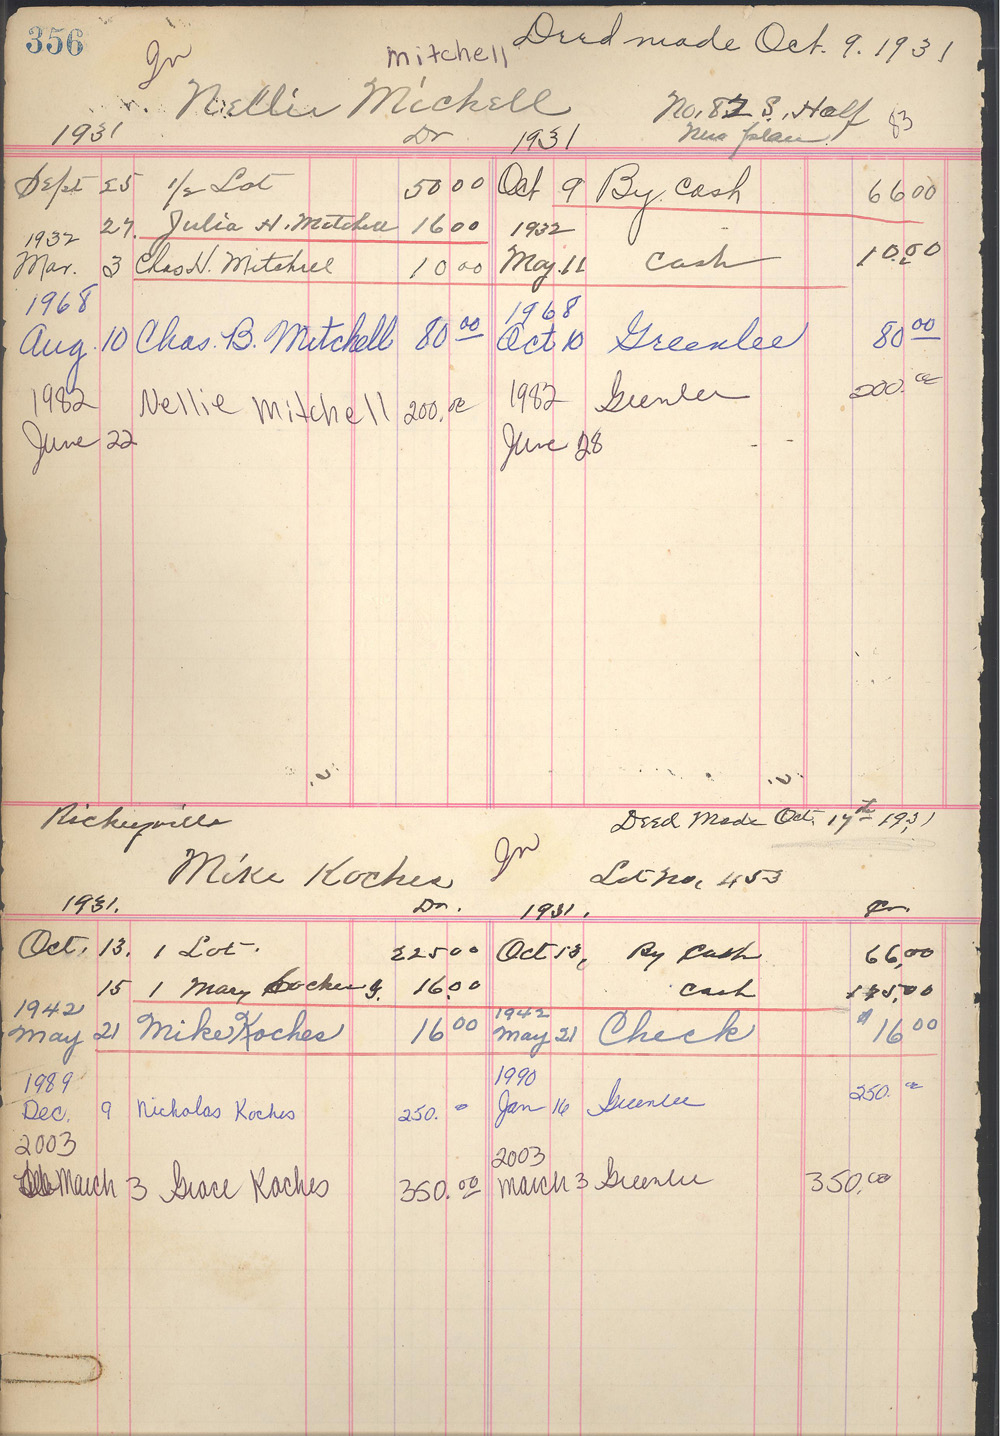 356
Jn
Mitchell
Deed made Oct. 9. 1931
Nellie Mickell
No. 82 S. Half 83
New plan
1931 Dr 1931
Sept 25 1/2 Lot 50 00 Oct 9 By cash 66 00
27. Julia H. Mitchell 16 00 1932
1932
Mar. 3 Chas H. Mitchell 10 00 May 11 cash 10.00
1968 1968
Aug. 10 Chas. B. Mitchell 80 00 Oct 10 Greenlee 80 00
1982 Nellie Mitchell 200.00 1982 Greenlee 200.00
June 22 June 28
Rickeyville Deed Made Oct. 17th 1931
Mike Koches Jn Lot No. 453
1931. Dr. 1931. Cr.
Oct. 13. 1 Lot. 225 00 Oct 13, By Cash 66,00
15 1 Mary g. 16.00 Cash 175,00
1942 1942
May 21 Mike Koches 16 00 May 21 Check $16 00
1989 1990
Dec. 9 Nicholas Koches 250. Jan 16 Greenlee 250.
2003 2003
March 3 Grace Koches 350.00 March 3 Greenlee 350.00